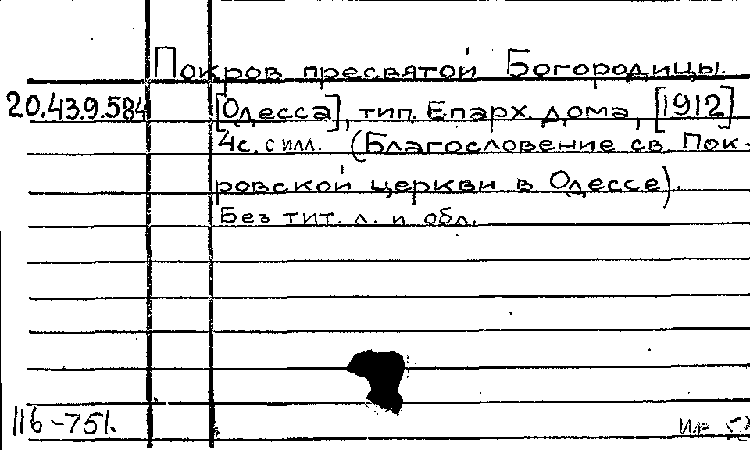 Покров пресвятой Богородицы.
20.43.9.584 [Одесса], тип. Епарх. дома, [1912]
4с. с илл. (Благословение св. Пок-
ровской церкви в Одессе).
Без тит. л. и обл.
116-751.